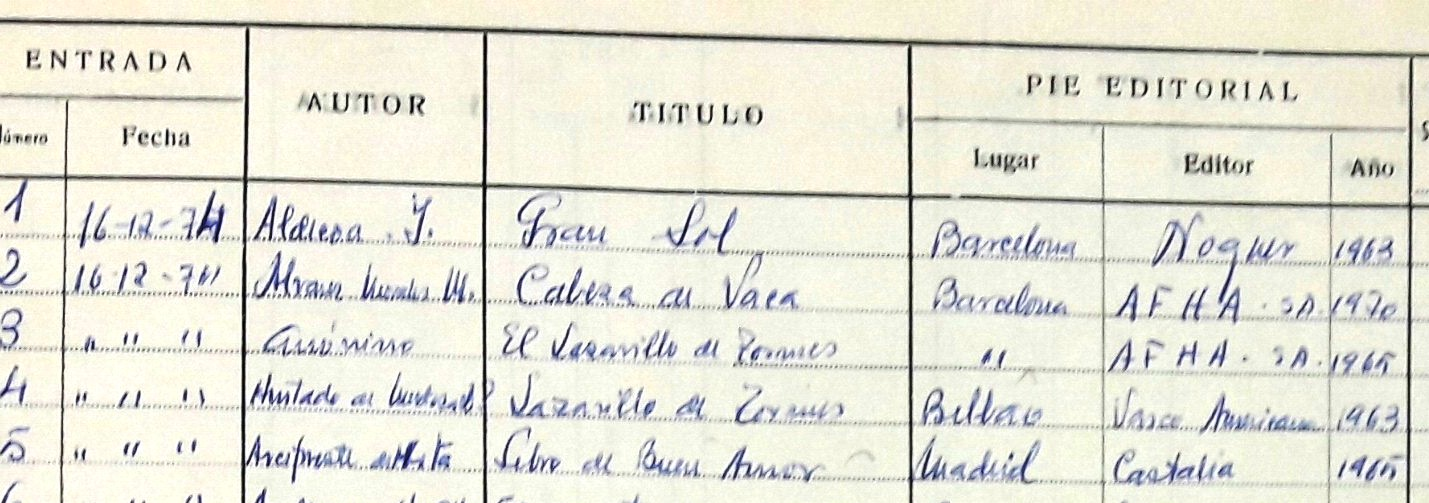 ENTRADA AUTOR TITULO PIE EDITORIAL
Número Fecha Lugar Editor Año
1 16-12-74 Aldecoa . J. Gran Sol Barcelona Noguer 1963
2 16-12-74 M. Cabeza de Vaca Barcelona AFHA. SA. 1970
3 " " " Anónimo El Lazarillo de Tormes " AFHA. SA. 1965
4 " " " Hurtado de Mendoza? Lazarillo de Tormes Bilbao Vasco Americana 1963
5 " " " Arcipreste de Hita Libro de Buen Amor Madrid Castalia 1965